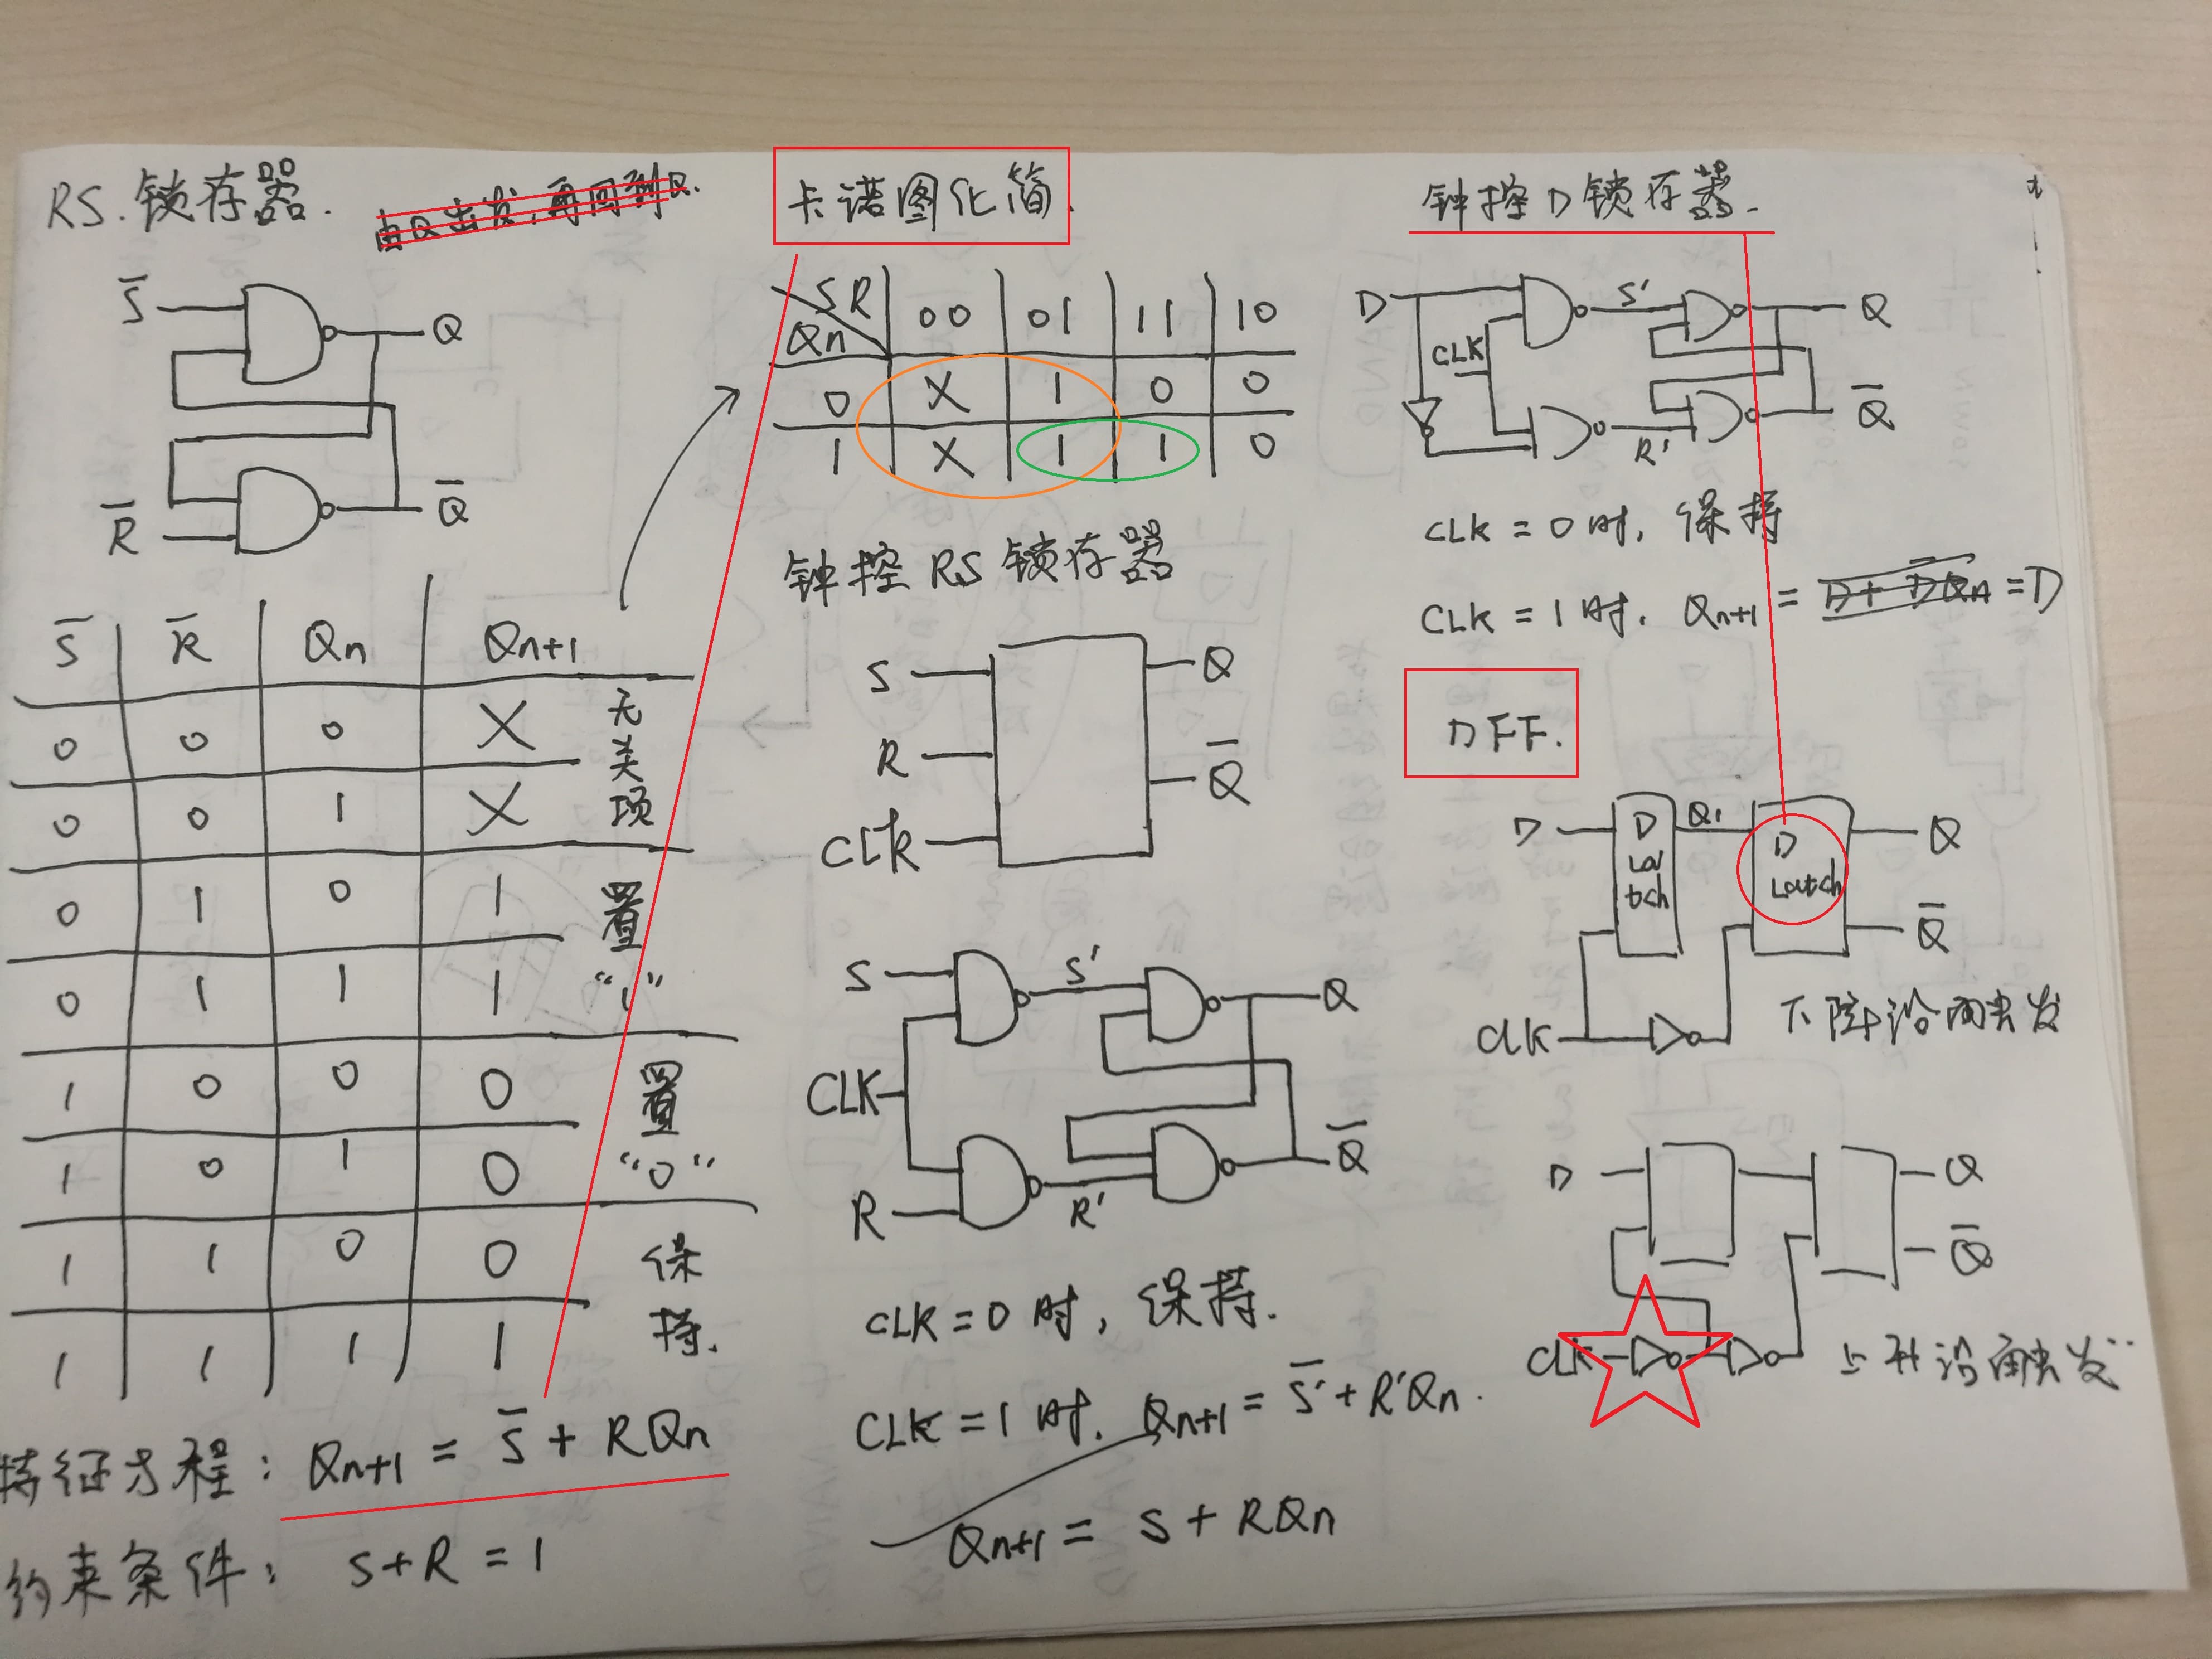 RS.锁存器.
由Q出发,再回到Q.
S̅
Q
R̅
Q̅
S̅ R̅ Qn Qn+1
0 0 0 X 无
0 0 1 X 关项
0 1 0 1 置
0 1 1 1 “1”
1 0 0 0 置
1 0 1 0 “0”
1 1 0 0 保
1 1 1 1 持.
特征方程: Qn+1 = S̅ + RQn
约束条件: S+R = 1
卡诺图化简.
SR 00 01 11 10
Qn
0 X 1 0 0
1 X 1 1 0
钟控 RS 锁存器
S
Q
R
Q̅
CLK
S
S'
Q
CLK
Q̅
R
R'
CLK = 0 时, 保持.
CLK = 1 时. Qn+1 = S̅' + R'Qn.
Qn+1 = S + RQn
钟控 D 锁存器.
D
S'
Q
CLK
Q̅
R'
CLK = 0 时, 保持
CLK = 1 时. Qn+1 = D + D̅Qn = D
DFF.
D
D Latch
Q1
D Latch
Q
Q̅
CLK
下降沿触发
D
Q
Q̅
CLK
上升沿触发